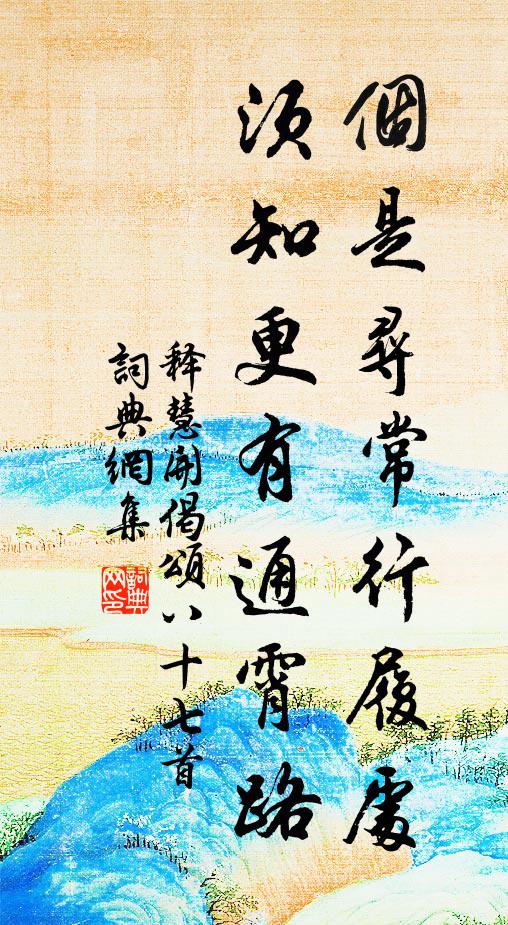 個是尋常行履處
須知更有通霄路
释慧開偈頌八十七首
詞典網集
詞典
网印